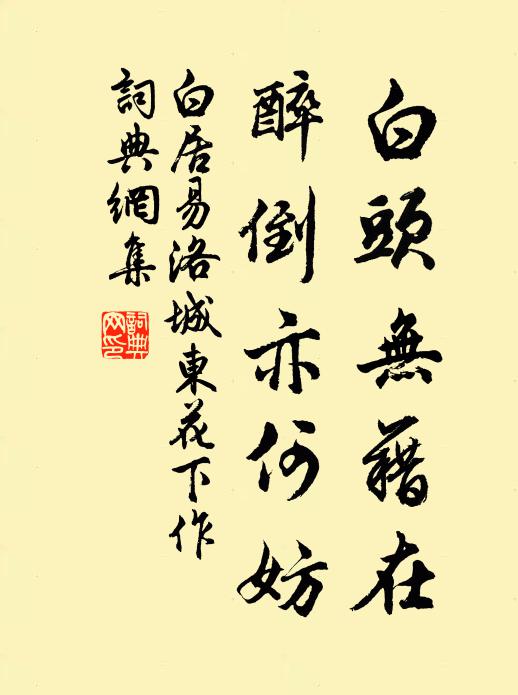 白頭無藉在
醉倒亦何妨
白居易洛城東花下作
詞典網集
詞典網印